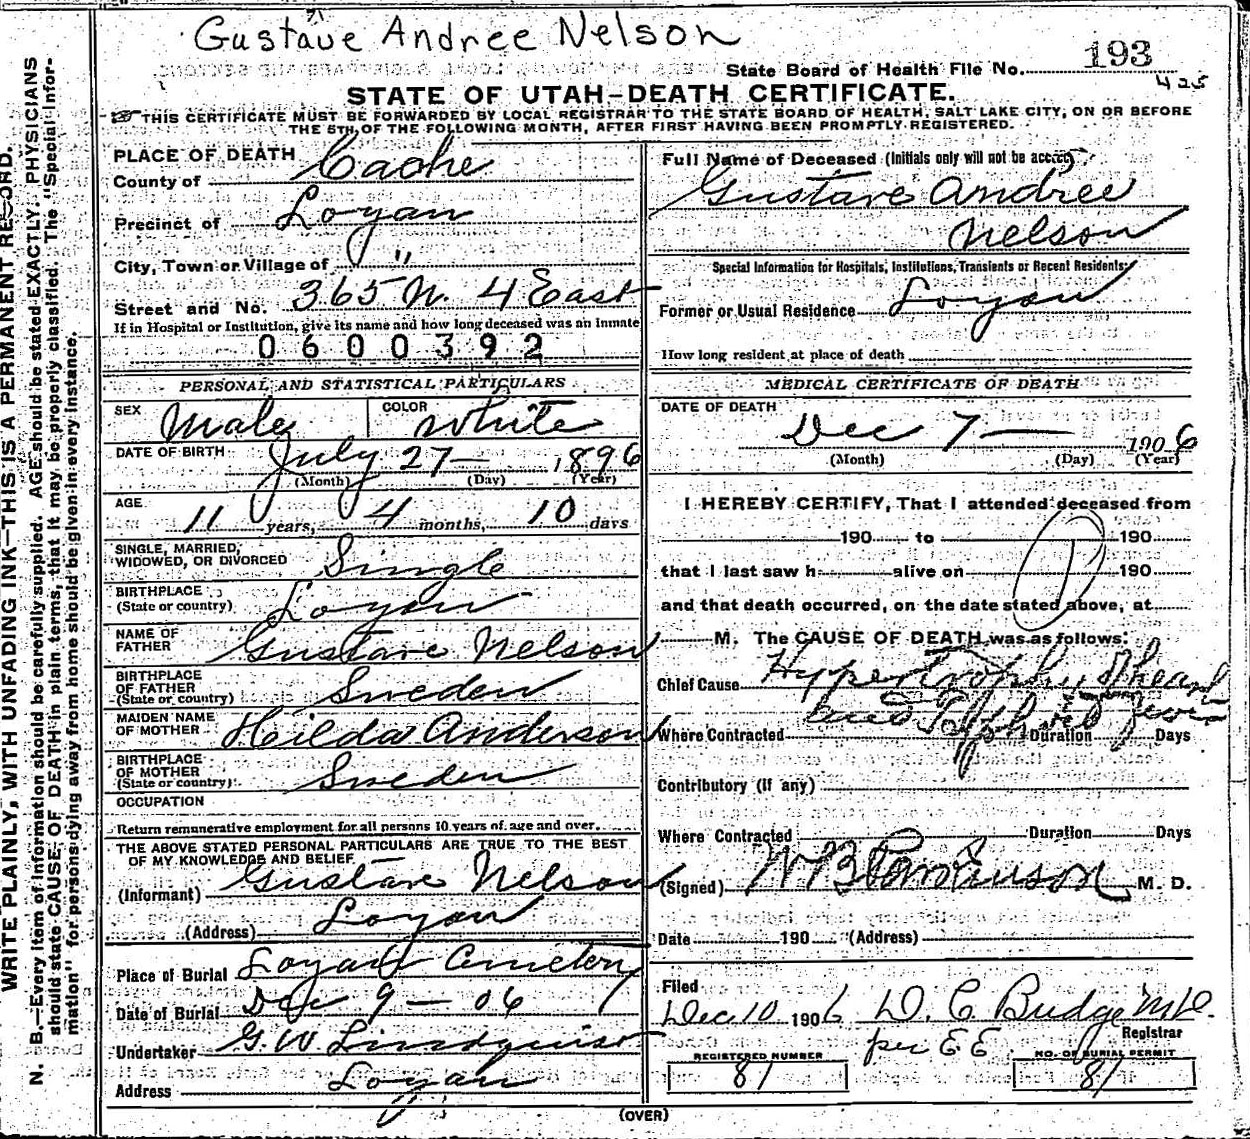 Gustave Andree Nelson
State Board of Health File No. 193
425
STATE OF UTAH-DEATH CERTIFICATE.
THIS CERTIFICATE MUST BE FORWARDED BY LOCAL REGISTRAR TO THE STATE BOARD OF HEALTH, SALT LAKE CITY, ON OR BEFORE
THE 5TH OF THE FOLLOWING MONTH, AFTER FIRST HAVING BEEN PROMPTLY REGISTERED.
WRITE PLAINLY, WITH UNFADING INK—THIS IS A PERMANENT RECORD.
N. B.—Every item of information should be carefully supplied. AGE should be stated EXACTLY. PHYSICIANS
should state CAUSE OF DEATH in plain terms, that it may be properly classified. The "Special Infor-
mation" for persons dying away from home should be given in every instance.
PLACE OF DEATH
County of Cache
Precinct of Logan
City, Town or Village of "
Street and No. 365 N. 4 East
If in Hospital or Institution, give its name and how long deceased was an inmate
0600392
PERSONAL AND STATISTICAL PARTICULARS
SEX Male COLOR White
DATE OF BIRTH July 27 — 1896
(Month) (Day) (Year)
AGE 11 years, 4 months, 10 days
SINGLE, MARRIED,
WIDOWED, OR DIVORCED Single
BIRTHPLACE
(State or country) Logan
NAME OF
FATHER Gustave Nelson
BIRTHPLACE
OF FATHER
(State or country) Sweden
MAIDEN NAME
OF MOTHER Hilda Anderson
BIRTHPLACE
OF MOTHER
(State or country) Sweden
OCCUPATION
Return remunerative employment for all persons 10 years of age and over.
THE ABOVE STATED PERSONAL PARTICULARS ARE TRUE TO THE BEST
OF MY KNOWLEDGE AND BELIEF.
(Informant) Gustave Nelson
(Address) Logan
Place of Burial Logan Cemetery
Date of Burial Dec 9 — 06
Undertaker G. W. Lindquist
Address Logan
Full Name of Deceased (Initials only will not be accept
Gustave Andree
Nelson
Special Information for Hospitals, Institutions, Transients or Recent Residents:
Former or Usual Residence Logan
How long resident at place of death
MEDICAL CERTIFICATE OF DEATH
DATE OF DEATH
Dec 7 — 1906
(Month) (Day) (Year)
I HEREBY CERTIFY, That I attended deceased from
190 to 190
that I last saw h alive on 190
and that death occurred, on the date stated above, at
M. The CAUSE OF DEATH was as follows:
Chief Cause Hypertrophy of heart
and Typhoid Fever
Where Contracted Duration Days
Contributory (if any)
Where Contracted Duration Days
(Signed) W B Parkinson M. D.
Date 190 (Address)
Filed
Dec 10 1906 D. C. Budge M.D.
per E E Registrar
REGISTERED NUMBER
81
NO. OF BURIAL PERMIT
81
(OVER)